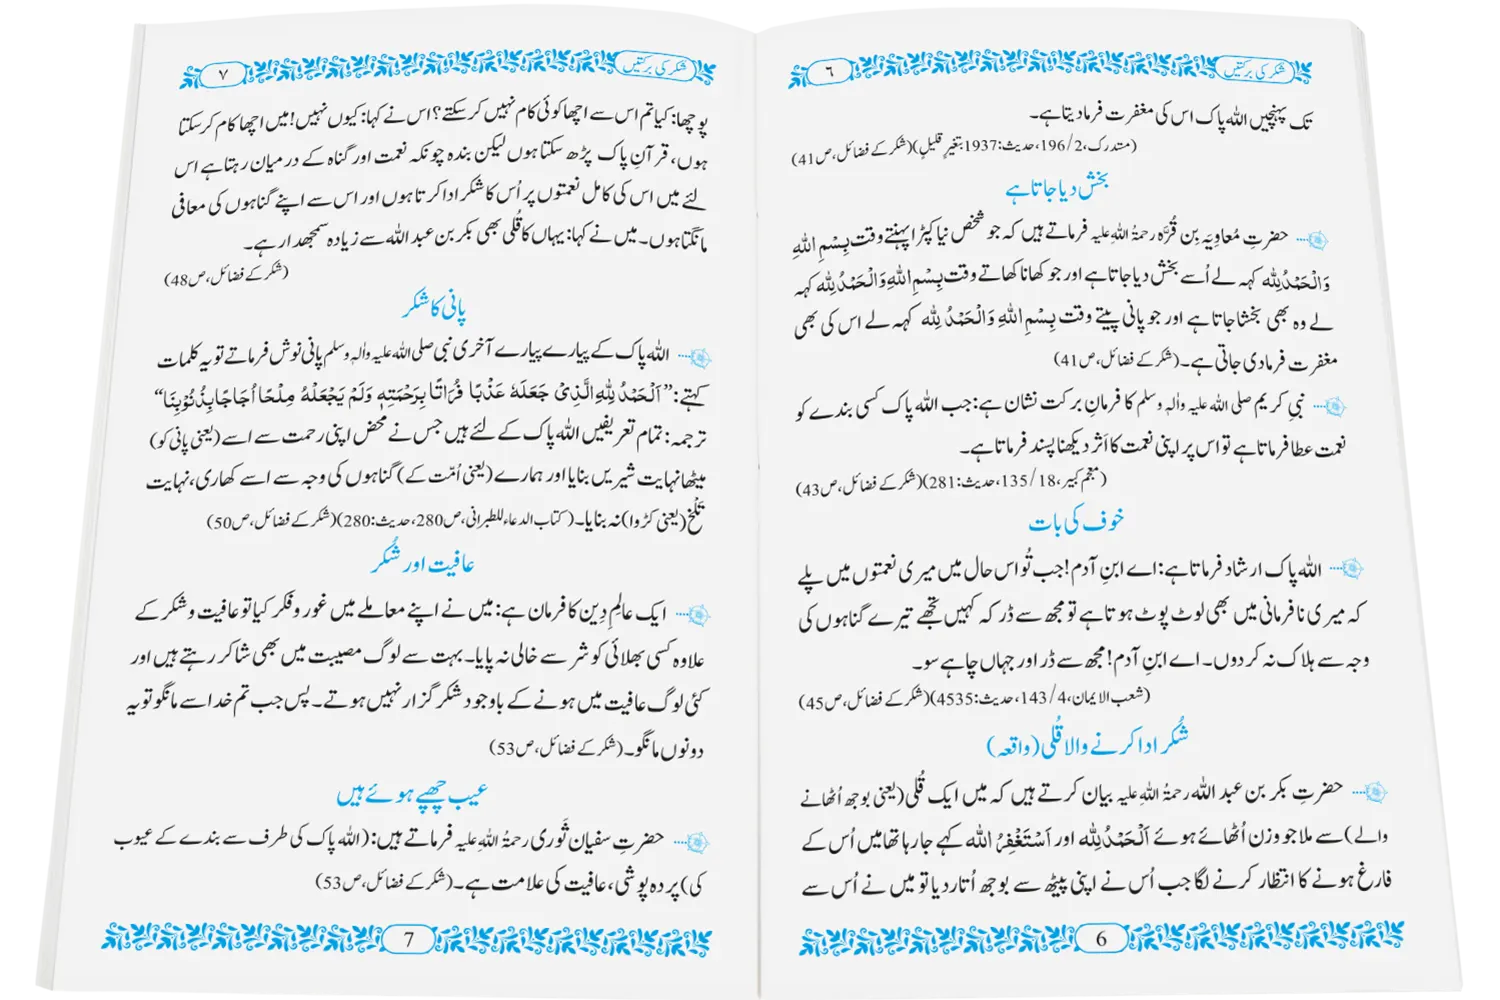 شکر کی برکتیں
٦
تک پہنچیں اللہ پاک اس کی مغفرت فرما دیتا ہے۔
(مستدرک، 2/196، حدیث: 1937 بتغیر قلیل)(شکر کے فضائل، ص41)
بخش دیا جاتا ہے
حضرتِ مُعاوِیَہ بِن قُرَّہ رحمۃُ اللہِ علیہ فرماتے ہیں کہ جو شخص نیا کپڑا پہنتے وقت بِسْمِ اللهِ
وَالْحَمْدُ لِلّٰه کہہ لے اُسے بخش دیا جاتا ہے اور جو کھانا کھاتے وقت بِسْمِ اللهِ وَالْحَمْدُ لِلّٰه کہہ
لے وہ بھی بخشا جاتا ہے اور جو پانی پیتے وقت بِسْمِ اللهِ وَالْحَمْدُ لِلّٰه کہہ لے اس کی بھی
مغفرت فرما دی جاتی ہے۔ (شکر کے فضائل، ص41)
نبیِ کریم صلی اللہ علیہ واٰلہٖ وسلم کا فرمانِ برکت نشان ہے: جب اللہ پاک کسی بندے کو
نعمت عطا فرماتا ہے تو اس پر اپنی نعمت کا اَثر دیکھنا پسند فرماتا ہے۔
(معجم کبیر، 18/135، حدیث: 281)(شکر کے فضائل، ص43)
خوف کی بات
اللہ پاک ارشاد فرماتا ہے: اے ابنِ آدم! جب تُو اس حال میں میری نعمتوں میں پلے
کہ میری نافرمانی میں بھی لوٹ پوٹ ہوتا ہے تو مجھ سے ڈر کہ کہیں تجھے تیرے گناہوں کی
وجہ سے ہلاک نہ کر دوں۔ اے ابنِ آدم! مجھ سے ڈر اور جہاں چاہے سو۔
(شعب الایمان، 4/143، حدیث: 4535)(شکر کے فضائل، ص45)
شُکر ادا کرنے والا قُلی (واقعہ)
حضرتِ بکر بن عبد اللہ رحمۃُ اللہِ علیہ بیان کرتے ہیں کہ میں ایک قُلی (یعنی بوجھ اُٹھانے
والے) سے ملا جو وزن اُٹھائے ہوئے اَلْحَمْدُ لِلّٰه اور اَسْتَغْفِرُ الله کہے جا رہا تھا میں اُس کے
فارغ ہونے کا انتظار کرنے لگا جب اُس نے اپنی پیٹھ سے بوجھ اُتار دیا تو میں نے اُس سے
6
شکر کی برکتیں
٧
پوچھا: کیا تم اس سے اچھا کوئی کام نہیں کر سکتے؟ اس نے کہا: کیوں نہیں! میں اچھا کام کر سکتا
ہوں، قرآنِ پاک پڑھ سکتا ہوں لیکن بندہ چونکہ نعمت اور گناہ کے درمیان رہتا ہے اس
لئے میں اس کی کامل نعمتوں پر اُس کا شکر ادا کرتا ہوں اور اس سے اپنے گناہوں کی معافی
مانگتا ہوں۔ میں نے کہا: یہاں کا قُلی بھی بکر بن عبد اللہ سے زیادہ سمجھدار ہے۔
(شکر کے فضائل، ص48)
پانی کا شکر
اللہ پاک کے پیارے پیارے آخری نبی صلی اللہ علیہ واٰلہٖ وسلم پانی نوش فرماتے تو یہ کلمات
کہتے: ”اَلْحَمْدُ لِلّٰهِ الَّذِیْ جَعَلَهٗ عَذْبًا فُرَاتًا بِرَحْمَتِهٖ وَلَمْ یَجْعَلْهُ مِلْحًا اُجَاجًا بِذُنُوْبِنَا“
ترجمہ: تمام تعریفیں اللہ پاک کے لئے ہیں جس نے محض اپنی رحمت سے اسے (یعنی پانی کو)
میٹھا نہایت شیریں بنایا اور ہمارے (یعنی اُمّت کے) گناہوں کی وجہ سے اسے کھاری، نہایت
تَلْخ (یعنی کڑوا) نہ بنایا۔ (کتاب الدعاء للطبرانی، ص280، حدیث: 280)(شکر کے فضائل، ص50)
عافیت اور شُکر
ایک عالِمِ دِین کا فرمان ہے: میں نے اپنے معاملے میں غور و فکر کیا تو عافیت و شکر کے
علاوہ کسی بھلائی کو شر سے خالی نہ پایا۔ بہت سے لوگ مصیبت میں بھی شاکر رہتے ہیں اور
کئی لوگ عافیت میں ہونے کے باوجود شکر گزار نہیں ہوتے۔ پس جب تم خدا سے مانگو تو یہ
دونوں مانگو۔ (شکر کے فضائل، ص53)
عیب چھپے ہوئے ہیں
حضرتِ سفیان ثَوری رحمۃُ اللہِ علیہ فرماتے ہیں: (اللہ پاک کی طرف سے بندے کے عیوب
کی) پردہ پوشی، عافیت کی علامت ہے۔ (شکر کے فضائل، ص53)
7